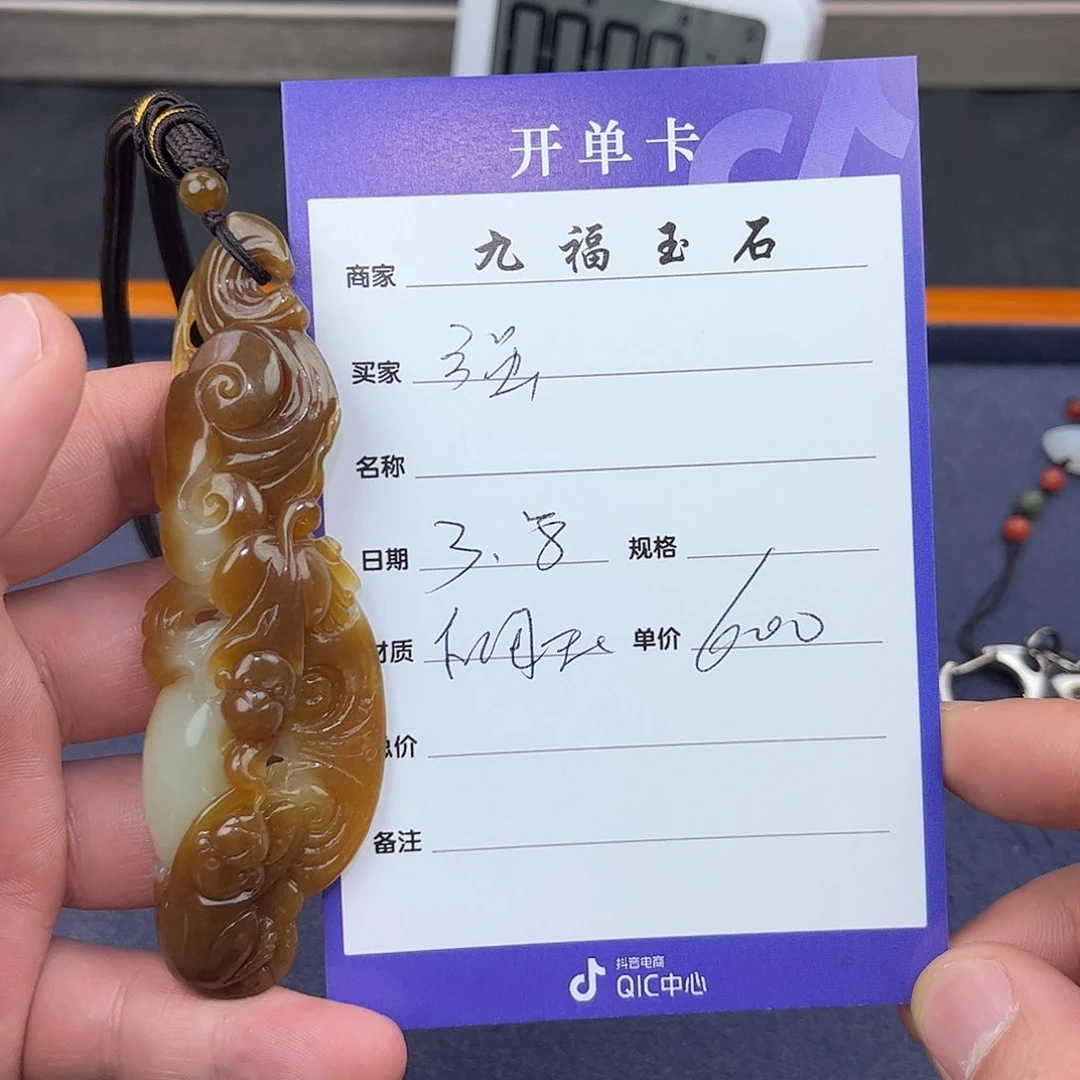 开单卡
商家 九福玉石
买家 强
名称
日期 3.8 规格
材质 和田玉 单价 600
总价
备注
抖音电商
QIC中心